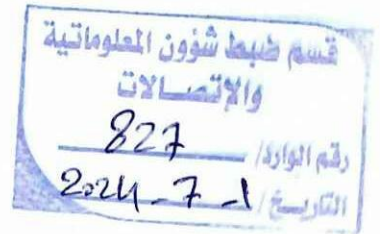 قسم ضبط شؤون المعلوماتية
والإتصالات
رقم الوارد/ 827
التاريخ/ 2024-7-1